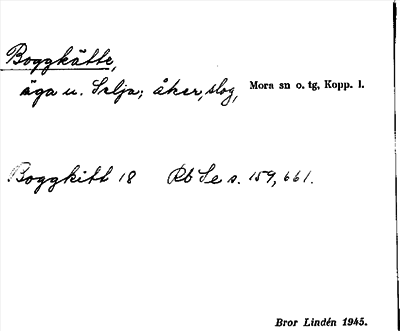 Boggkätte,
äga u. Selja; åker, slog, Mora sn o. tg, Kopp. l.
Boggkitt 18 Rb Se s. 159, 661.
Bror Lindén 1945.